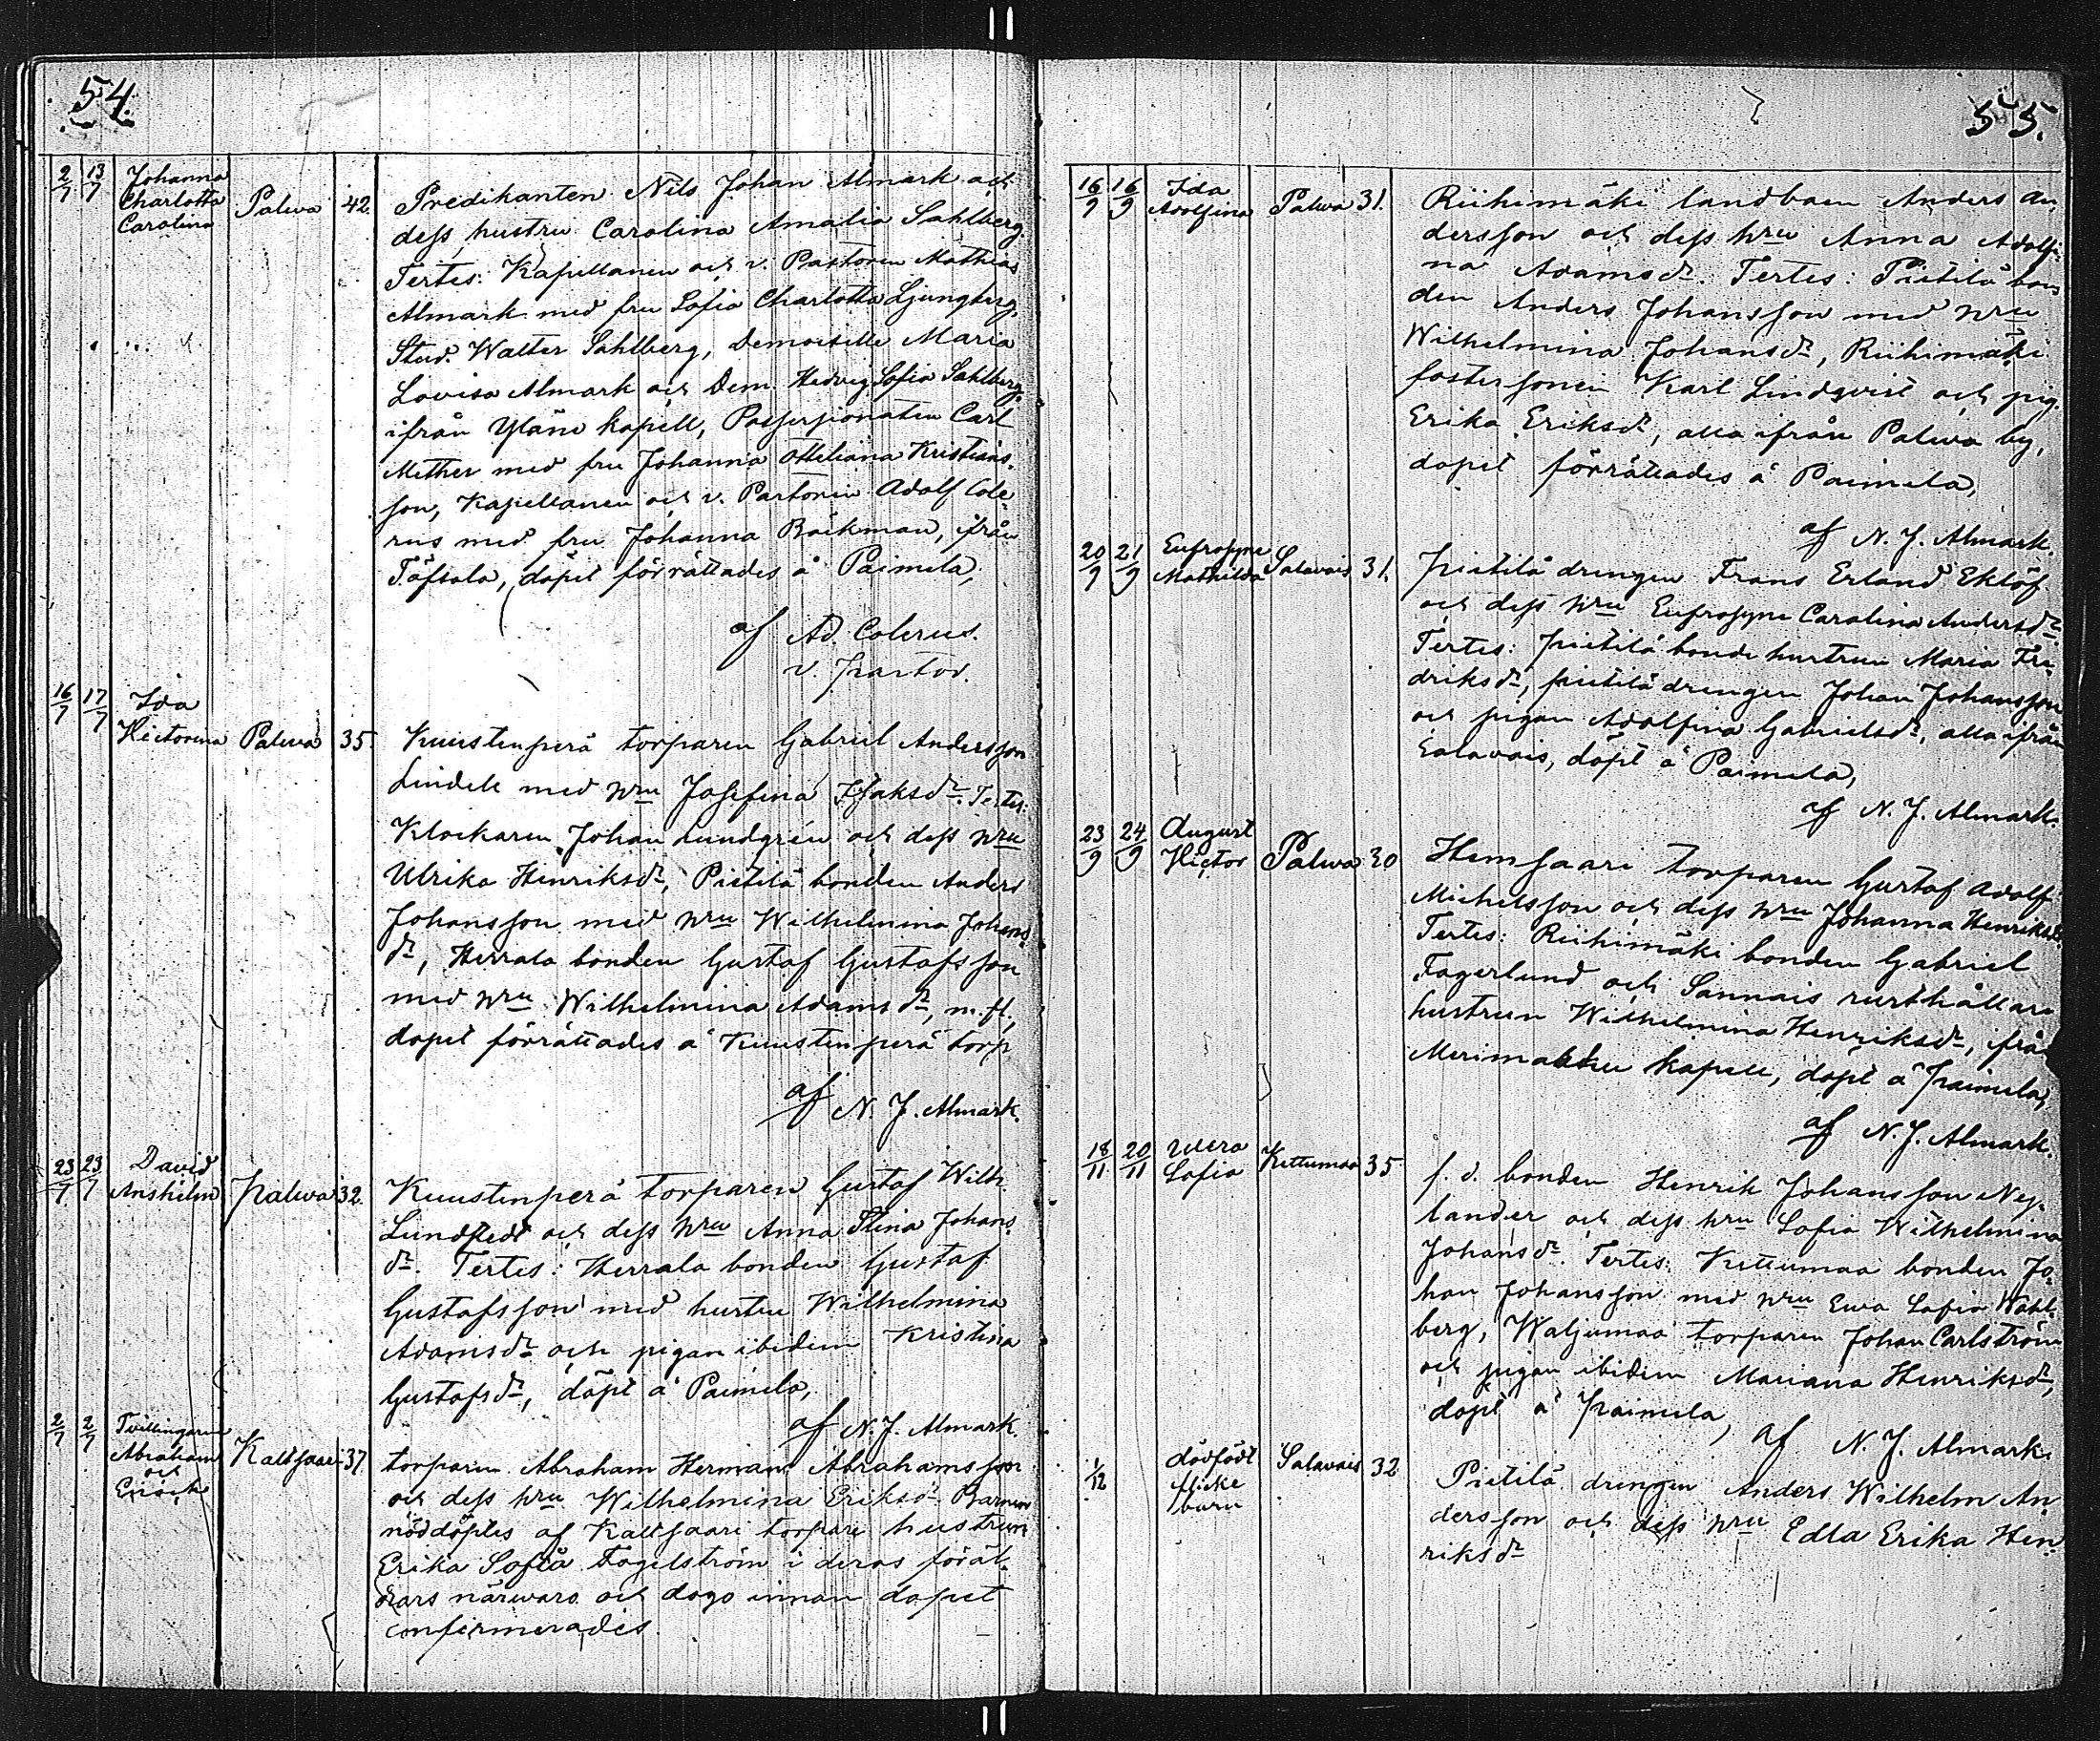 54.
2/7 13/7 Johanna Charlotta Carolina Palwa 42.
Predikanten Nils Johan Almark och
dess hustru Carolina Amalia Sahlberg.
Tertes: Kapellanen och v. Pastoren Mathias
Almark med fru Sofia Charlotta Ljungberg,
Stud. Walter Sahlberg, Demoiselle Maria
Lovisa Almark och Dem. Hedvig Sofia Sahlberg,
ifrån Yläne kapell, Possessionaten Carl
Mether med fru Johanna Ottiliana Kristians-
son, Kapellanen och v. Pastorin Adolf Cole-
rus med fru Johanna Bäckman, ifrån
Töfsala, döpet förrättades å Paimela,
af Ad. Colerus.
v. pastor.
16/7 17/7 Ida Victorina Palwa 35.
Kuustenperä torparen Gabriel Andersson
Lindell med hru Josefina Isaksdr. Tertes:
Klockaren Johan Lundgrén och dess hru
Ulrika Henriksdr, Pietilä bonden Anders
Johansson med hru Wilhelmina Johans-
dr, Herrala bonden Gustaf Gustafsson
med hru Wilhelmina Adamsdr, m.fl.,
dopet förrättades å Kuustenperä torp
af N. J. Almark.
23/7 23/7 David Anshelm Palwa 32.
Kuustenperä torparen Gustaf Wilh.
Lundstedt och dess hru Anna Stina Johans-
dr. Tertes: Herrala bonden Gustaf
Gustafsson med hustru Wilhelmina
Adamsdr och pigan ibidem Kristina
Gustafsdr, döpt å Paimela,
af N. J. Almark.
2/7 2/7 Tvillingarne Abraham och Enock Kaltsaari 37
torparen Abraham Herman Abrahamsson
och dess hru Wilhelmina Eriksdr. Barnen
nöddöptes af Kaltsaari torpare hustrun
Erika Sofia Fagelström i deras föräl-
drars närwaro och dogo innan dopet
confirmerades.
55.
16/9 16/9 Ida Adolfina Palwa 31.
Riihimäki landboen Anders An-
dersson och dess hru Anna Adolfi-
na Adamsdr. Tertes: Pietilä bon-
den Anders Johansson med hru
Wilhelmina Johansdr, Riihimäki
fostersonen Karl Lindqvist och pig.
Erika Eriksdr, alla ifrån Palwa by,
dopet förrättades å Paimela,
af N. J. Almark.
20/9 21/9 Eufrosyne Mathilda Salavais 31.
Pietilä drengen Frans Erland Eklöf
och dess hru Eufrosyne Carolina Andersdr.
Tertes: Pietilä bonde hustrun Maria Fre-
driksdr, Pietilä drengen Johan Johansson
och pigan Adolfina Gabrielsdr, alla ifrån
Salavais, döpt å Paimela,
af N. J. Almark.
23/9 24/9 August Victor Palwa 30
Hemsaari torparen Gustaf Adolf
Michelsson och dess hru Johanna Henriksdr.
Tertes: Riihimäki bonden Gabriel
Fagerlund och Sannais rusthållare
hustrun Wilhelmina Henriksdr, ifrån
Merimasku kapell, döpt å Paimela,
af N. J. Almark.
18/11 20/11 Wera Sofia Kettumaa 35
f. d. bonden Henrik Johansson Ny-
lander och dess hru Sofia Wilhelmina
Johansdr. Tertes: Kettumaa bonden Jo-
han Johansson med hru Ewa Sofia Wahl-
berg, Waljumaa torparen Johan Carlström
och pigan ibidem Mariana Henriksdr,
döpt å Paimela,
af N. J. Almark.
1/12 dödfödt flicke barn Salavais 32
Pietilä drengen Anders Wilhelm An-
dersson och dess hru Edla Erika Hen-
riksdr